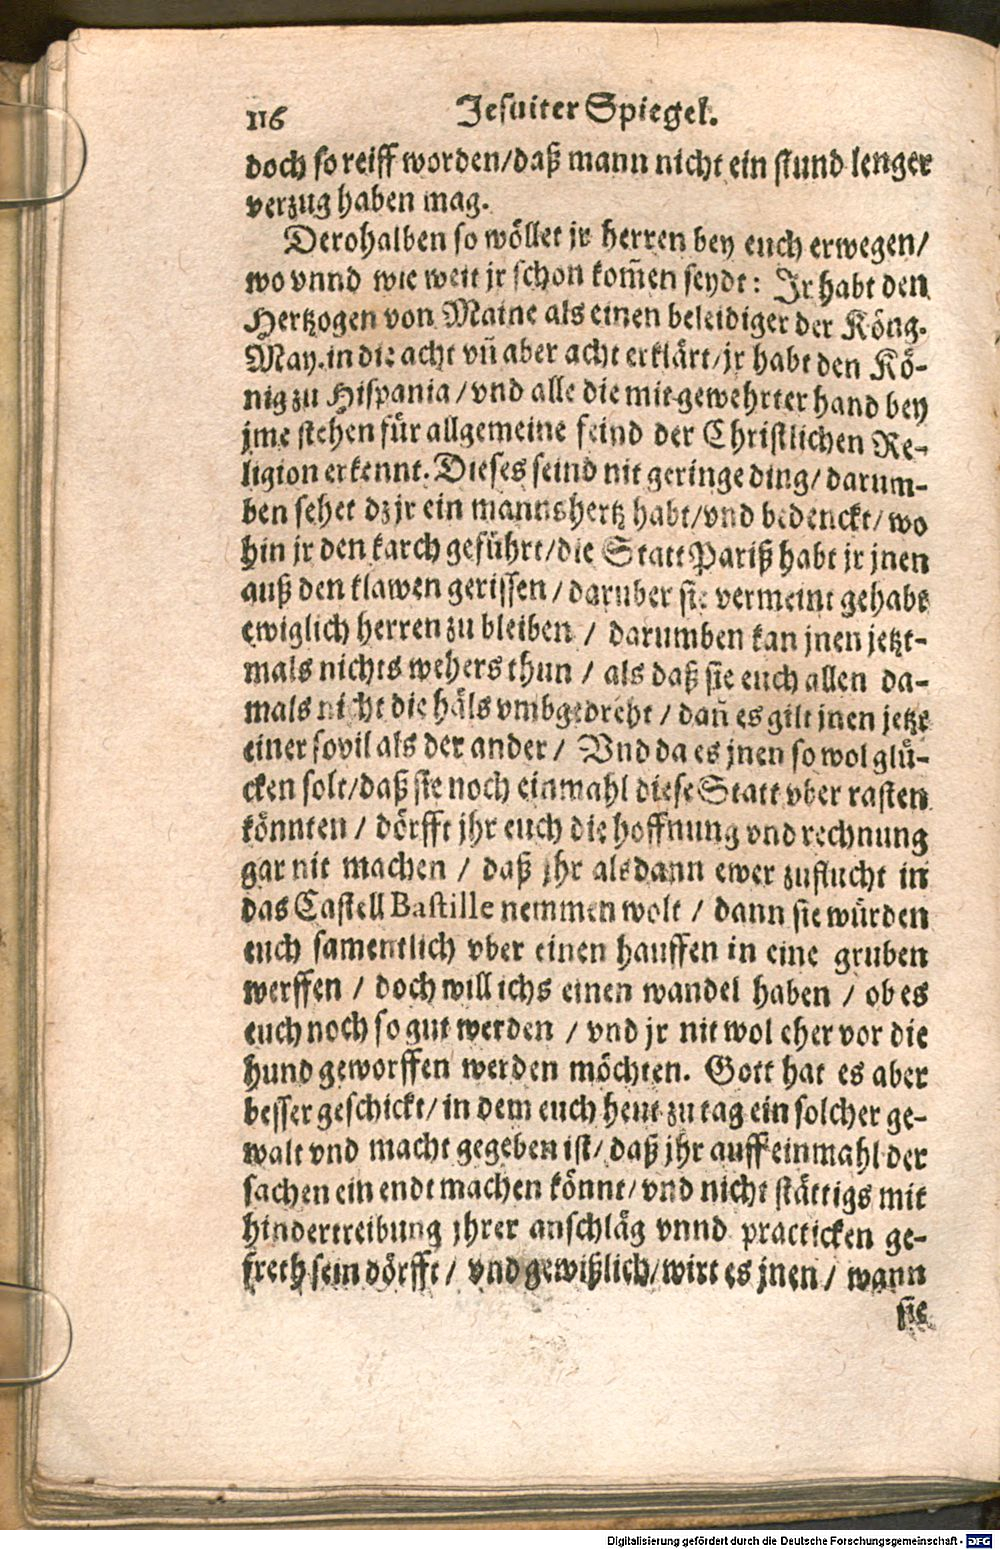 116 Jesuiter Spiegel.
doch so reiff worden/daß mann nicht ein stund lenger
verzug haben mag.
Derohalben so wöllet jr herren bey euch erwegen/
wo vnnd wie weit jr schon kom̃en seydt: Jr habt den
Hertzogen von Maine als einen beleidiger der Köng.
May. in die acht vn̄ aber acht erklärt/jr habt den Kö-
nig zu Hispania/vnd alle die mit gewehrter hand bey
jme stehen für allgemeine feind der Christlichen Re-
ligion erkennt. Dieses seind nit geringe ding/darum-
ben sehet dz jr ein manns hertz habt/vnd bedenckt/wo
hin jr den karch geführt/die Statt Pariß habt jr jnen
auß den klawen gerissen/daruber sie vermeint gehabt
ewiglich herren zu bleiben/darumben kan jnen jetzt-
mals nichts wehers thun/als daß sie euch allen da-
mals nicht die häls vmbgedreht/dañ es gilt jnen jetzt
einer sovil als der ander/Vnd da es jnen so wol glü-
cken solt/daß sie noch einmahl diese Statt vber rasten
könnten/dörfft jhr euch die hoffnung vnd rechnung
gar nit machen/daß jhr alsdann ewer zuflucht in
das Castell Bastille nemmen wolt/dann sie würden
euch samentlich vber einen hauffen in eine gruben
werffen/doch will ichs einen wandel haben/ob es
euch noch so gut werden/vnd jr nit wol eher vor die
hund geworffen werden möchten. Gott hat es aber
besser geschickt/in dem euch heut zu tag ein solcher ge-
walt vnd macht gegeben ist/daß jhr auff einmahl der
sachen ein endt machen könnt/vnd nicht stättigs mit
hindertreibung jhrer anschläg vnnd practicken ge-
freth sein dörfft/vnd gewißlich/wirt es jnen/wann
sie
Digitalisierung gefördert durch die Deutsche Forschungsgemeinschaft - DFG